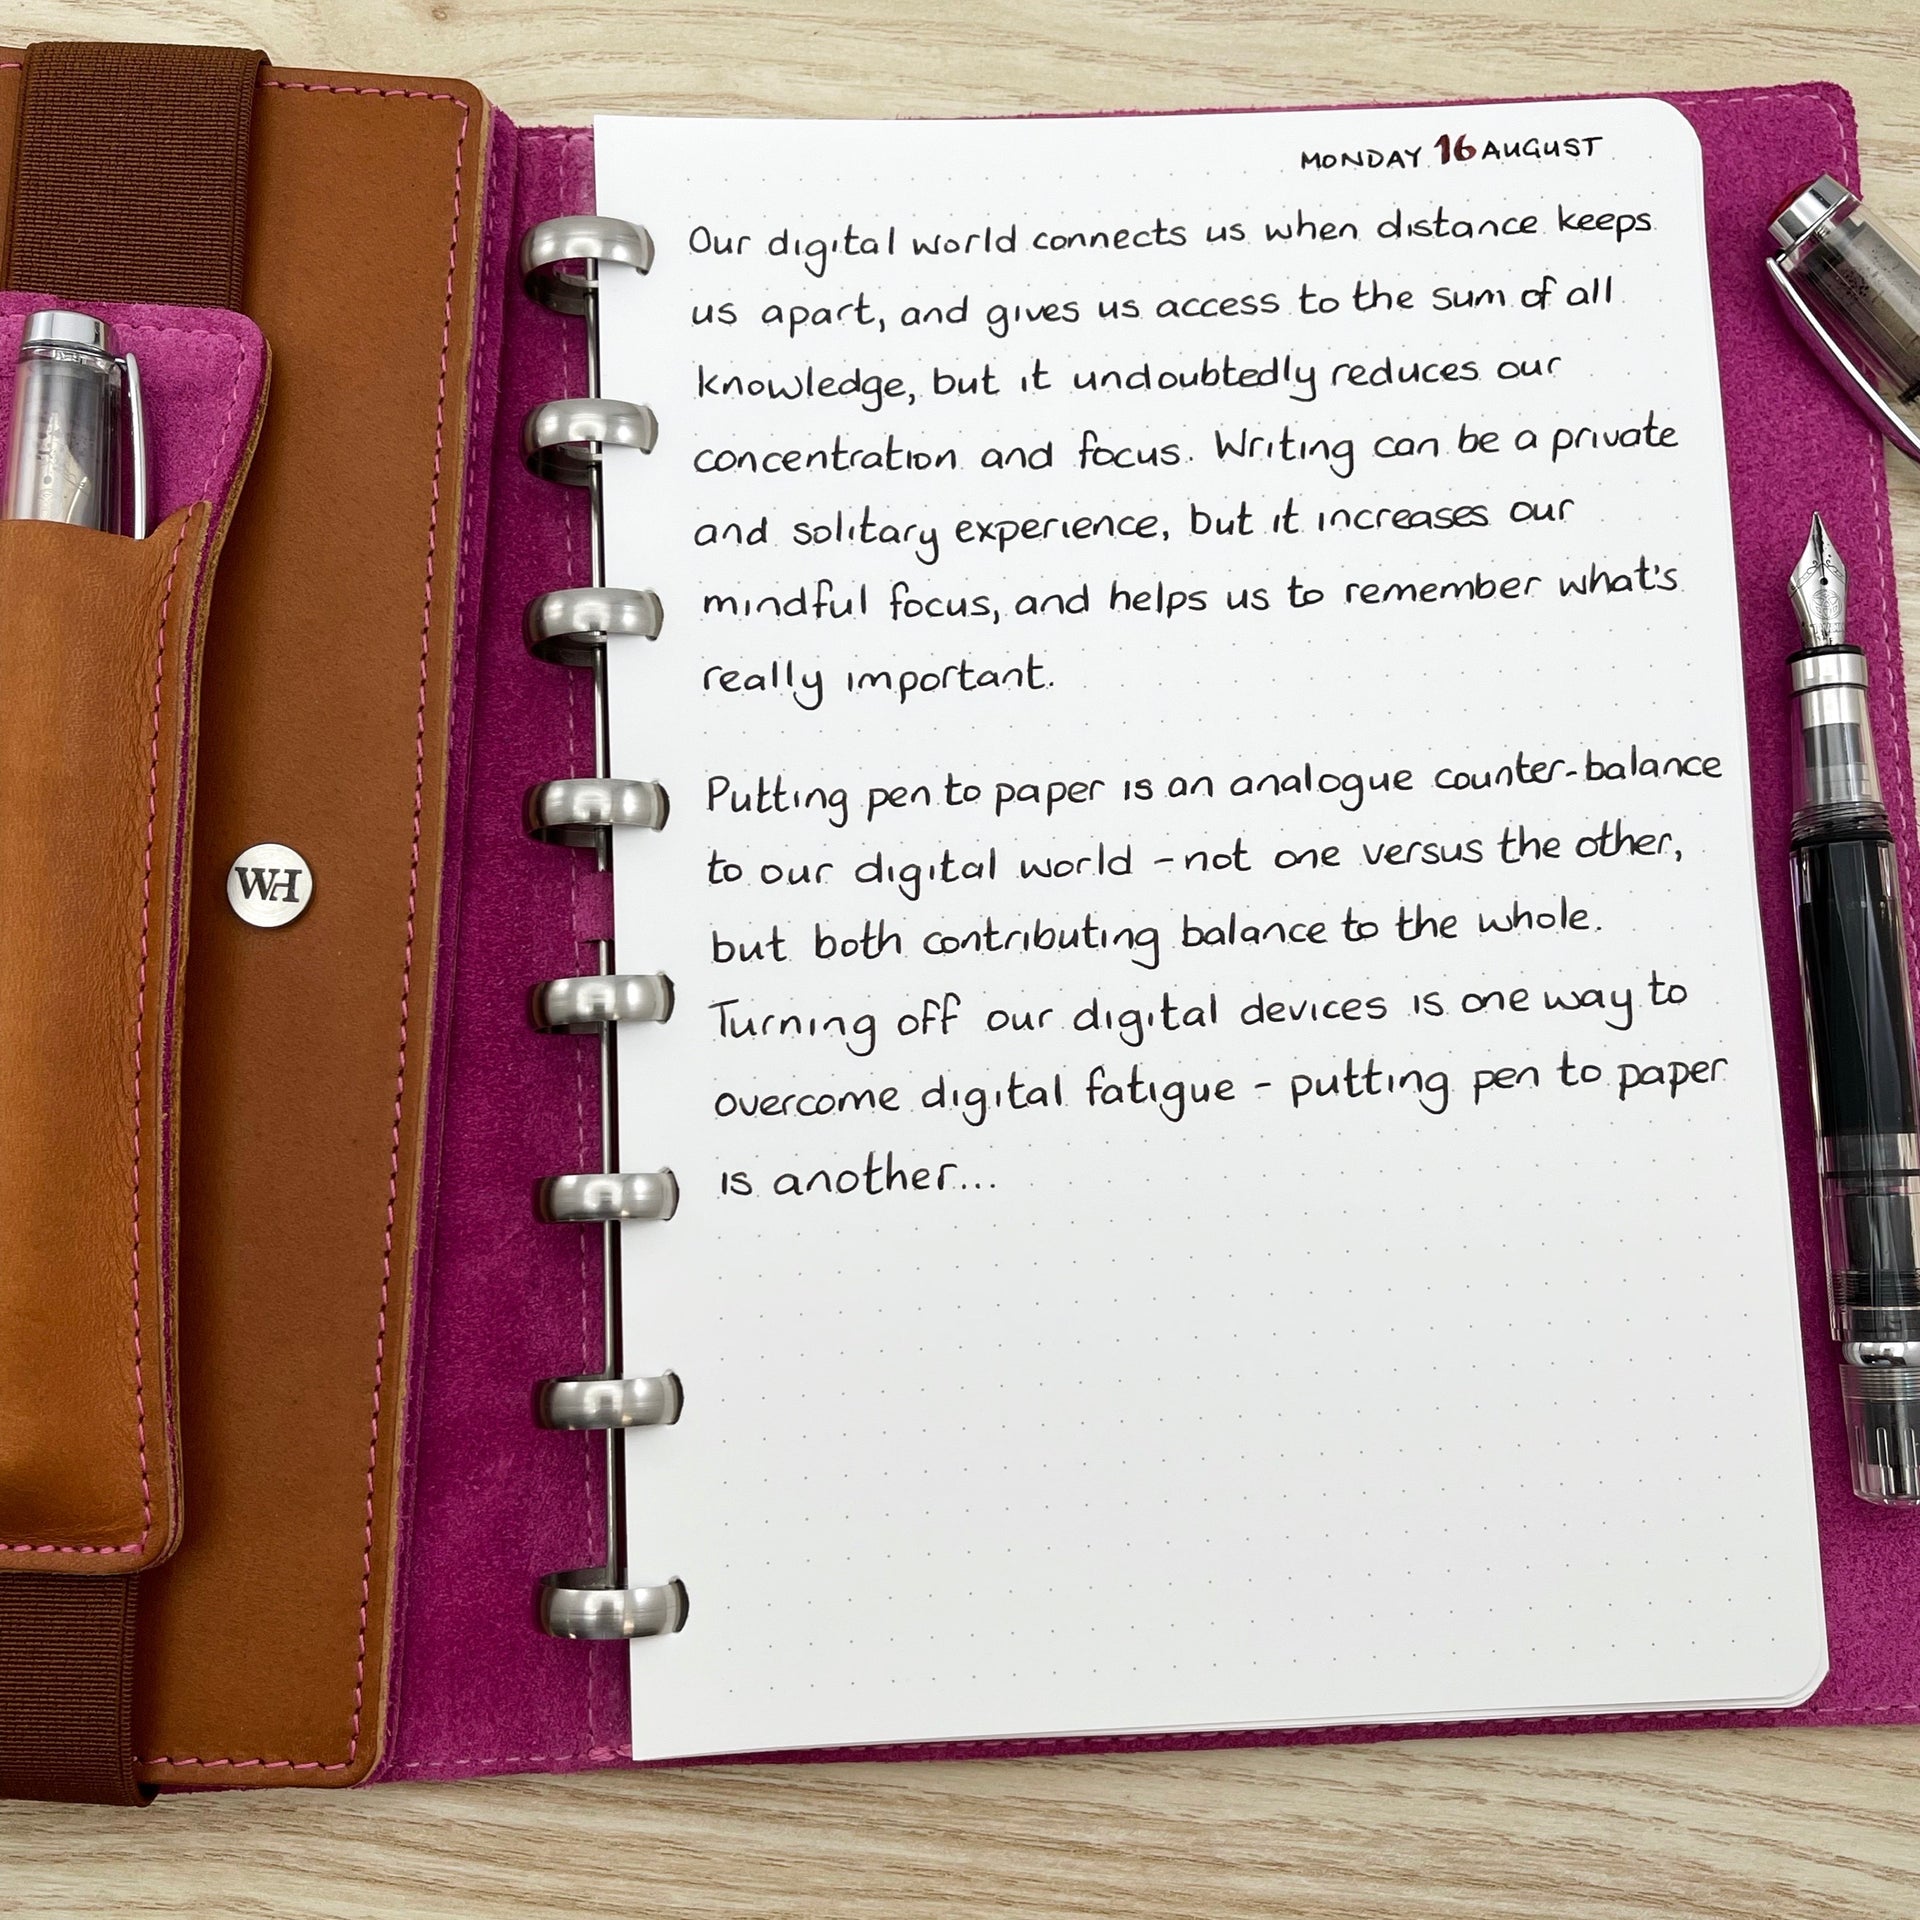 MONDAY 16 AUGUST
Our digital world connects us when distance keeps
us apart, and gives us access to the sum of all
knowledge, but it undoubtedly reduces our
concentration and focus. Writing can be a private
and solitary experience, but it increases our
mindful focus, and helps us to remember what's
really important.
Putting pen to paper is an analogue counter-balance
to our digital world - not one versus the other,
but both contributing balance to the whole.
Turning off our digital devices is one way to
overcome digital fatigue - putting pen to paper
is another...
WH